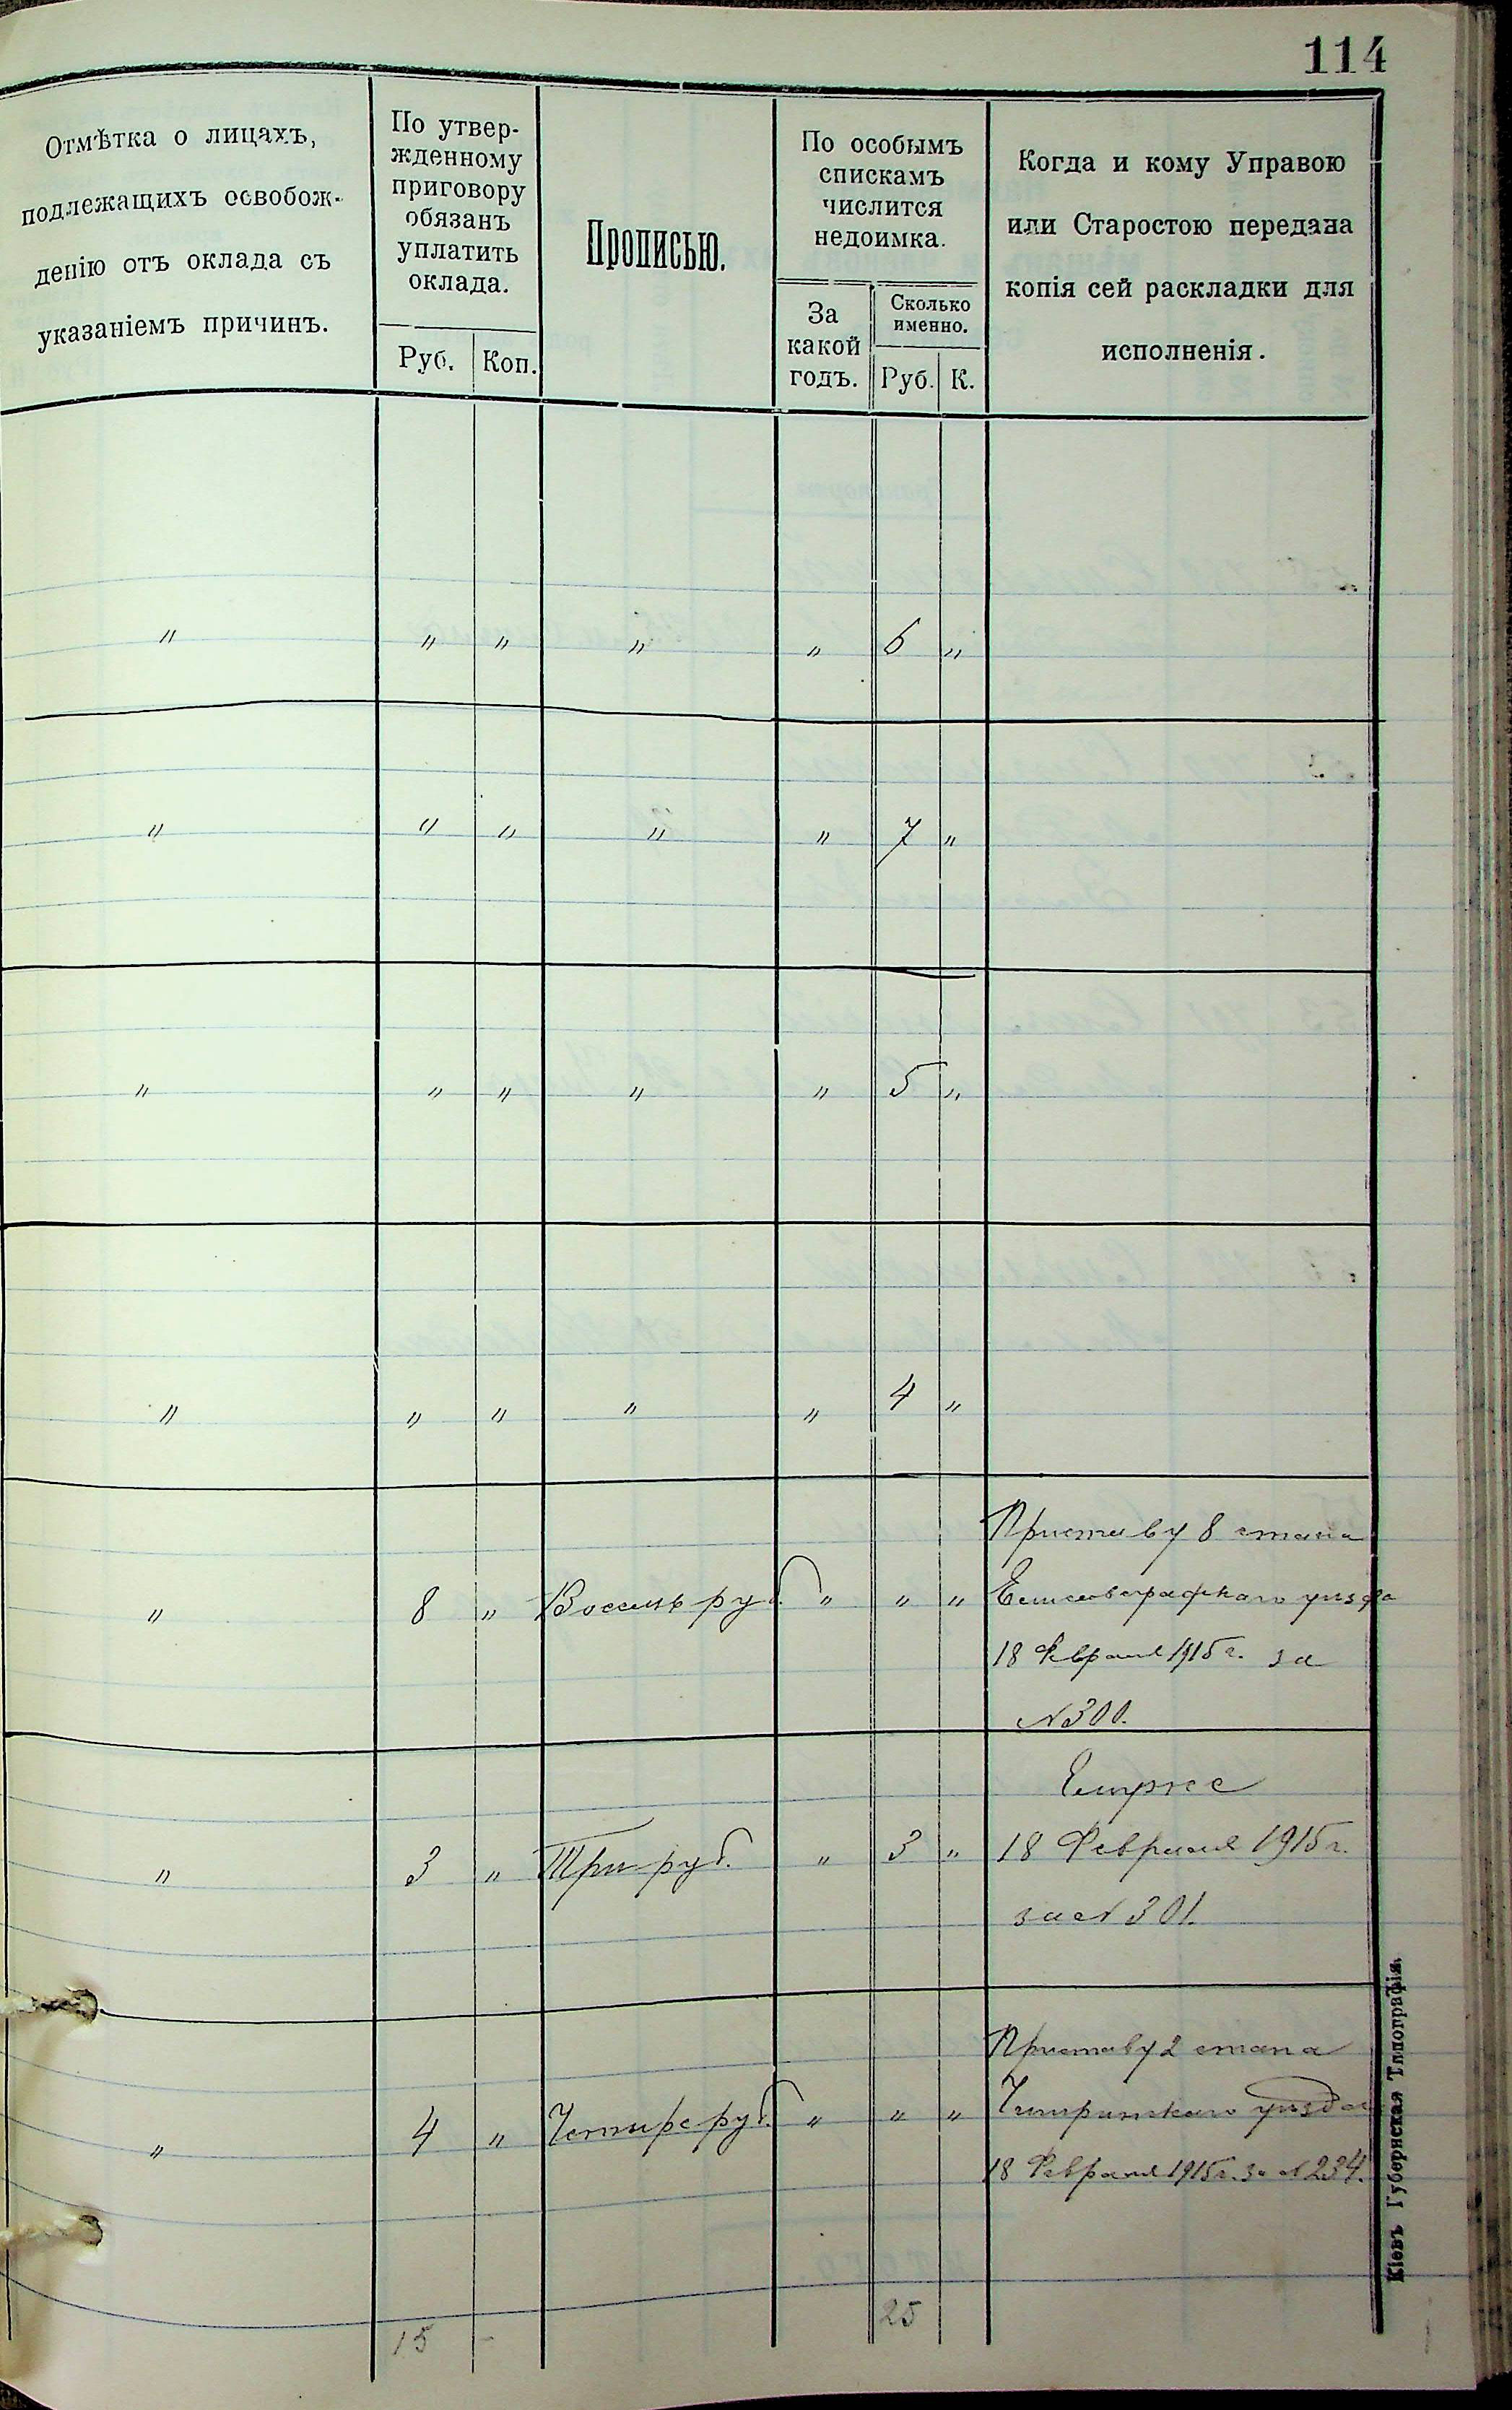 114
Отмѣтка о лицахъ,
подлежащихъ освобож-
денію отъ оклада съ
указаніемъ причинъ.
По утвер-
жденному
приговору
обязанъ
уплатить
оклада.
Руб. Коп.
Прописью.
По особымъ
спискамъ
числится
недоимка.
За
какой
годъ.
Сколько
именно.
Руб. К.
Когда и кому Управою
или Старостою передана
копія сей раскладки для
исполненія.
" " " " " 6 "
" " " " " 7 "
" " " " " 5 "
" " " " " 4 "
Приставу 8 стана
" 8 " Восемь руб. " " " Елисаветградскаго уѣзда
18 Февраля 1915 г. за
№ 300.
Ему же
" 3 " Три руб. " 3 " 18 Февраля 1915 г.
за № 301.
Приставу 2 стана
" 4 " Четыре руб. " " " Чигиринскаго уѣзда
18 Февраля 1915 г. за № 234.
15 - 25
Кіевъ Губернская Типографія.